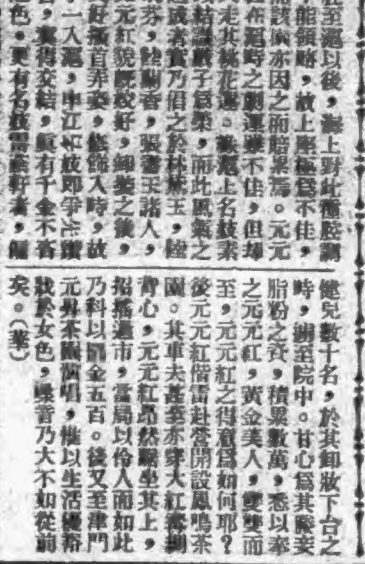 至滬以後,海上對此種腔調
不能領略,故上座極爲不佳,
而該園亦因之而賠累焉。元元
紅在滬時之劇運雖不佳,但却
走其桃花運。緣滬上名妓素
結識戲子爲榮,而此風氣之
者實乃倡之於林黛玉,陸
芬,陸蘭香,張書玉諸人,
元紅貌既姣好,卸裝之後,
好搔首弄姿,修飾入時,故
一入滬,申江名妓即爭先
冀得交結,眞有千金不吝
色,更有名妓雷蕊軒者,備
健兒數十名,於其卸妝下台之
時,綁至院中。甘心爲其媵妾
脂粉之資,積累數萬,悉以奉
之元元紅,黃金美人,雙雙而
至,元元紅之得意爲如何耶?
後元元紅偕雷赴營開設鳳鳴茶
園。其車夫甚至亦穿大紅綢
背心,元元紅昂然踞坐其上,
招搖過市,當局以伶人而如此
乃科以罰金五百。後又至津門
元昇茶園演唱,惟以生活優裕
戕於女色,嗓音乃大不如從前
矣。(華)